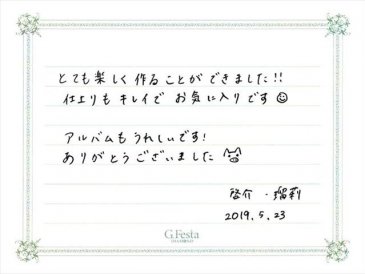 とても楽しく作ることができました!!
仕上りもキレイでお気に入りです
アルバムもうれしいです!
ありがとうございました
啓介・瑠莉
2019.5.23
G.Festa